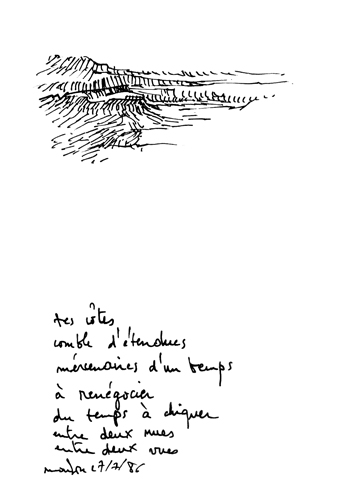 tes côtes
comble d'étendues
mércenaires d'un temps
à renégocier
du temps à
entre deux nues
entre deux vues
27/7/86